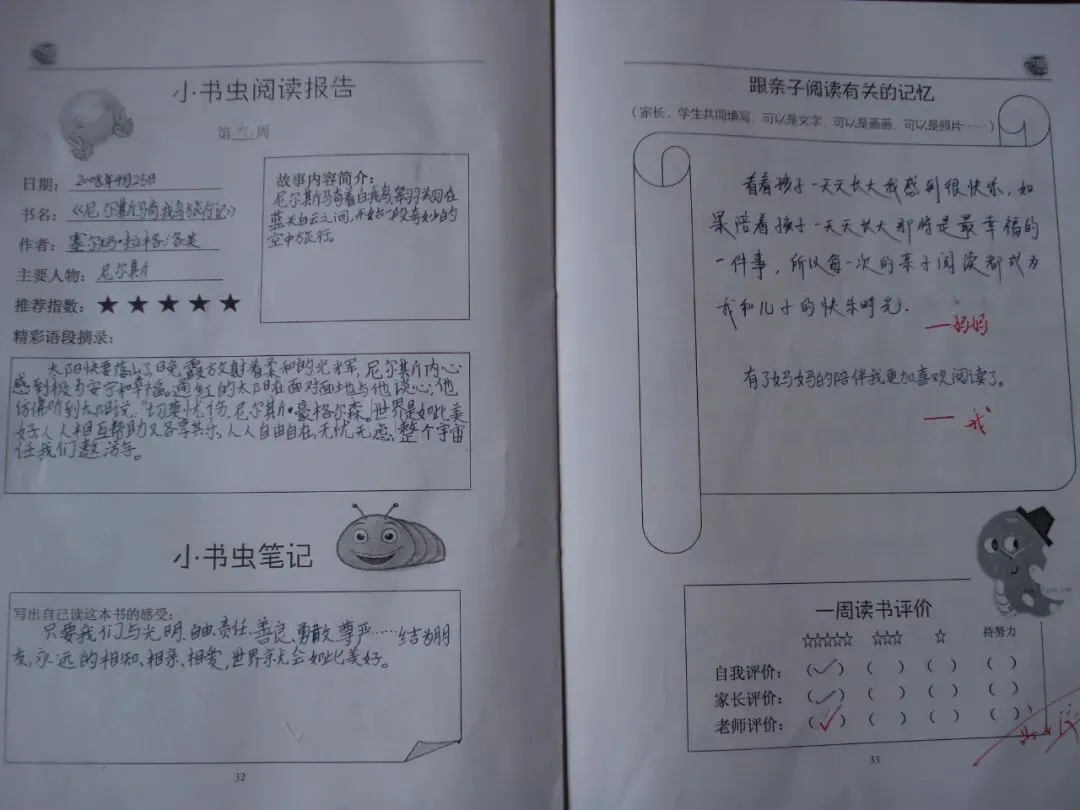 小书虫阅读报告
第九周
日期：2008年9月25日
书名：《尼尔斯骑鹅旅行记》
作者：塞尔玛·拉格洛芙
主要人物：尼尔斯
推荐指数：★★★★★
故事内容简介：
尼尔斯骑着白鹅 翱翔在
蓝天白云之间，开始一段奇妙的
空中旅行。
精彩语段摘录：
太阳快要落山了，晚霞放射着柔和的光辉，尼尔斯内心
感到极为安宁和幸福。通红的太阳在面对面地与他谈心，他
仿佛听到太阳说，“切莫忧伤，尼尔斯·豪格尔森。世界是如此美
好，人人相互帮助又各享其乐，人人自由自在，无忧无虑，整个宇宙
任我们遨游。
小书虫笔记
写出自己读这本书的感受：
只要我们与光明、自由、责任、善良、勇敢、尊严……结为朋
友，永远的相知、相亲、相爱，世界就会如此美好。
32
跟亲子阅读有关的记忆
（家长、学生共同填写，可以是文字，可以是画画，可以是照片……）
看着孩子一天天长大我感到很快乐，如
果陪着孩子一天天长大那将是最幸福的
一件事，所以每一次的亲子阅读都成为
我和儿子的快乐时光。
—妈妈
有了妈妈的陪伴我更加喜欢阅读了。
—我
一周读书评价
☆☆☆☆☆ ☆☆☆ ☆ 待努力
自我评价：（✓）（ ）（ ）（ ）
家长评价：（✓）（ ）（ ）（ ）
老师评价：（✓）（ ）（ ）（ ）
33